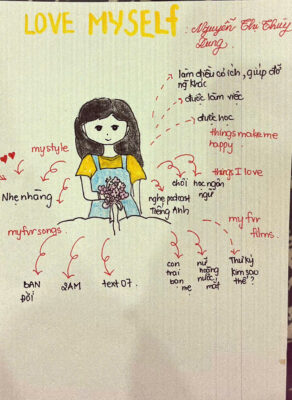 LOVE MYSELF : Nguyễn Thị Thùy
Dung.
làm điều có ích, giúp đỡ
ng khác
được làm việc
được học
things make me
happy
my style
Nhẹ nhàng
things I love
chơi
học ngôn
ngữ
nghe podcast
Tiếng Anh
my fvr songs.
BẠN
ĐỜI
2AM
text 07.
my fvr
films.
con
trai
bạn
mẹ
nữ
hoàng
nước
mắt
Thư ký
kim sao
thế?